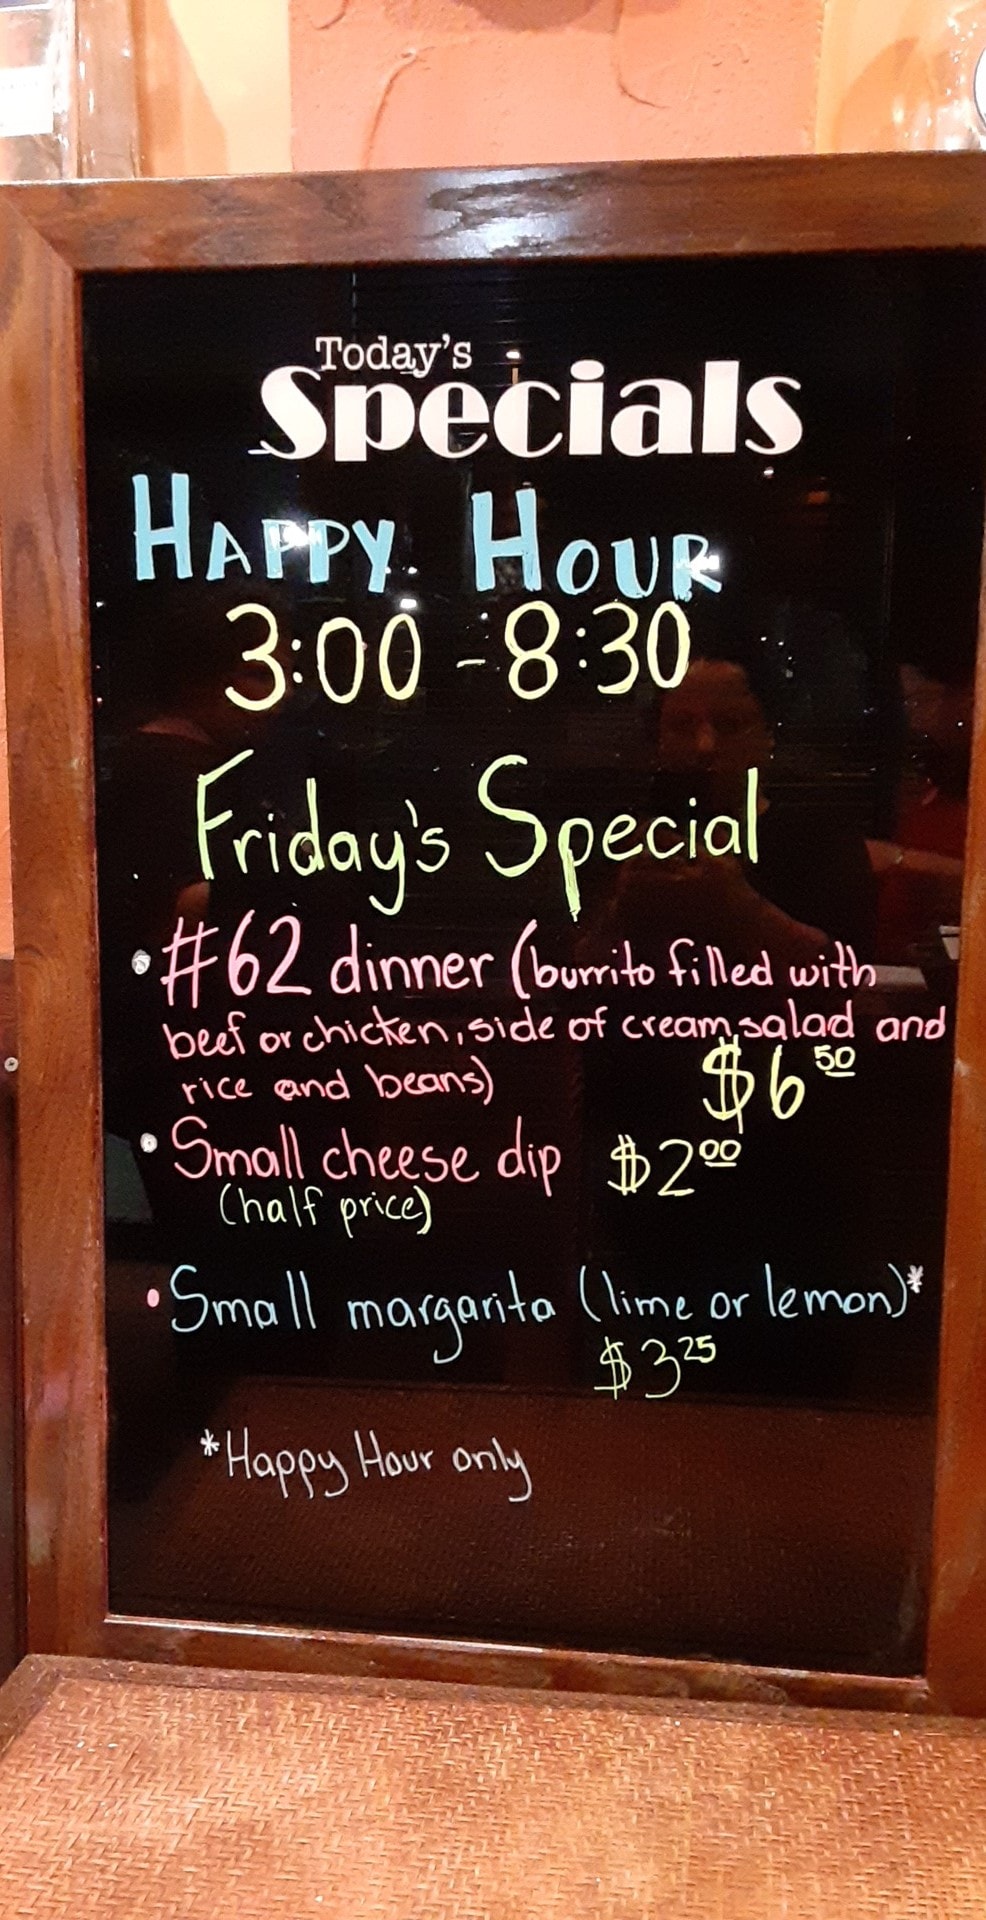 Today's
Specials
HAPPY HOUR
3:00 - 8:30
Friday's Special
• #62 dinner (burrito filled with
beef or chicken, side of cream, salad and
rice and beans) $6 50
• Small cheese dip $2 00
(half price)
• Small margarita (lime or lemon)*
$3 25
*Happy Hour only